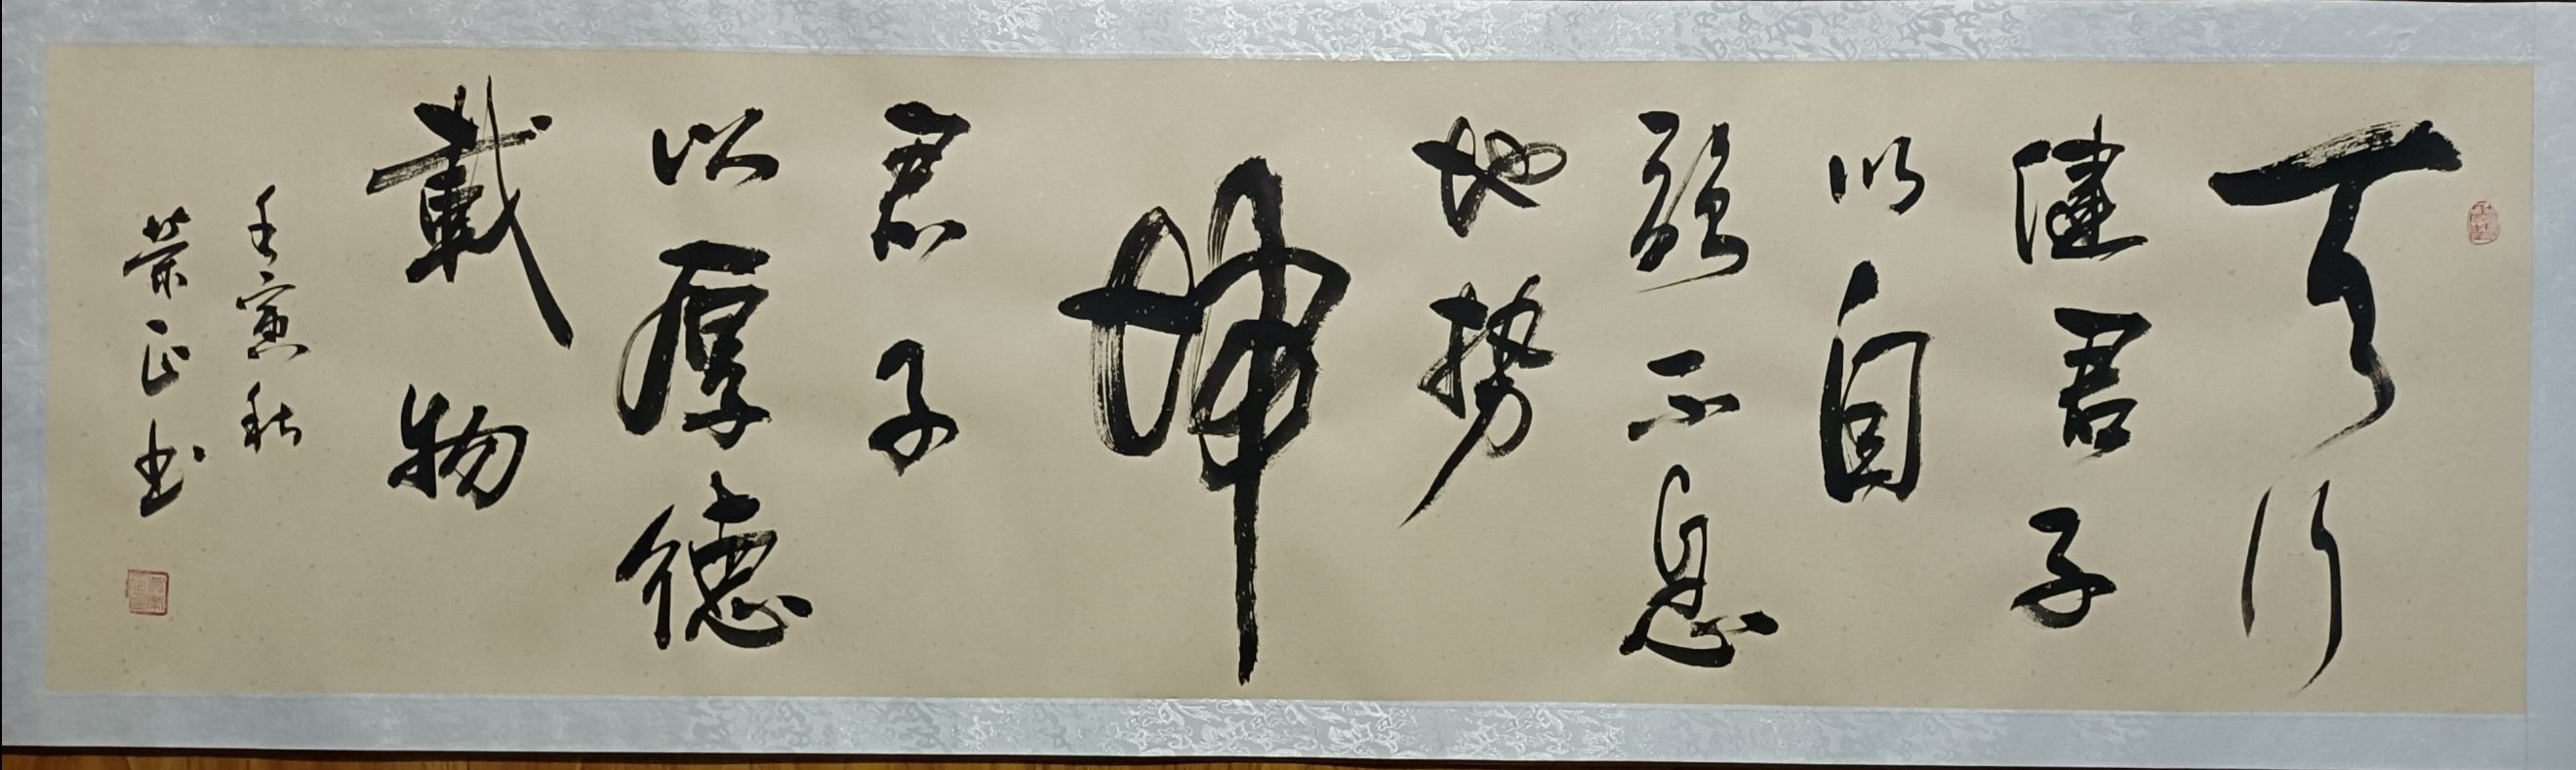 天行
健君子
以自
强不息
地势
坤
君子
以厚德
载物
壬寅秋
荣正书